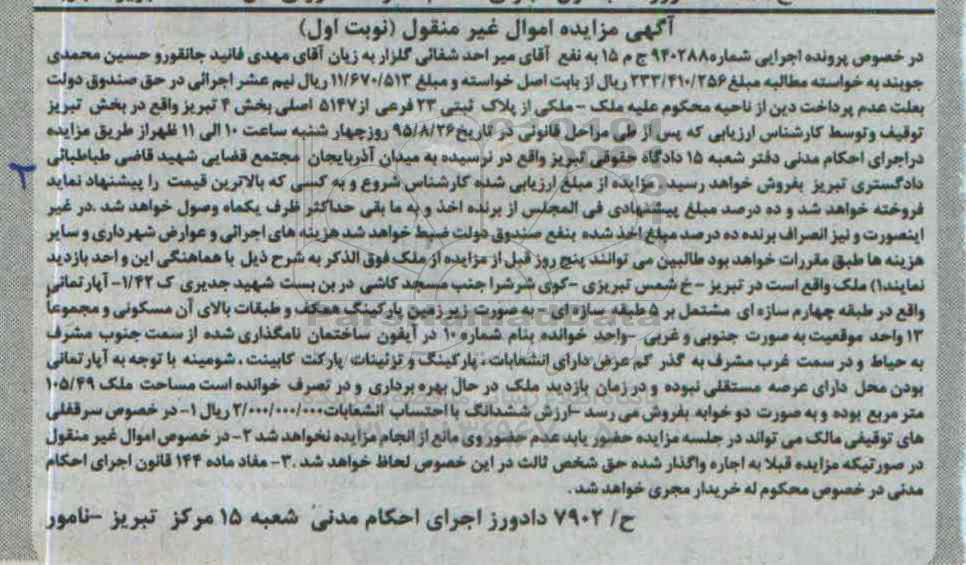 آگهی مزایده اموال غیر منقول (نوبت اول)
در خصوص پرونده اجرایی شماره۹۴۰۲۸۸ ج م ۱۵ به نفع آقای میر احد شفائی گلزار به زیان آقای مهدی فائید جانقورو حسین محمدی
جوبند به خواسته مطالبه مبلغ ۲۳۳/۴۱۰/۲۵۶ ریال از بابت اصل خواسته و مبلغ ۱۱/۶۷۰/۵۱۳ ریال نیم عشر اجرائی در حق صندوق دولت
بعلت عدم پرداخت دین از ناحیه محکوم علیه ملک - ملکی از پلاک ثبتی ۲۳ فرعی از ۵۱۴۷ اصلی بخش ۴ تبریز واقع در بخش تبریز
توقیف وتوسط کارشناس ارزیابی که پس از طی مراحل قانونی در تاریخ ۹۵/۸/۲۶ روزچهار شنبه ساعت ۱۰ الی ۱۱ ظهراز طریق مزایده
دراجرای احکام مدنی دفتر شعبه ۱۵ دادگاه حقوقی تبریز واقع در نرسیده به میدان آذربایجان مجتمع قضایی شهید قاضی طباطبائی
دادگستری تبریز بفروش خواهد رسید. مزایده از مبلغ ارزیابی شده کارشناس شروع و به کسی که بالاترین قیمت را پیشنهاد نماید
فروخته خواهد شد و ده درصد مبلغ پیشنهادی فی المجلس از برنده اخذ و به ما بقی حداکثر ظرف یکماه وصول خواهد شد .در غیر
اینصورت و نیز انصراف برنده ده درصد مبلغ اخذ شده بنفع صندوق دولت ضبط خواهد شد هزینه های اجرائی و عوارض شهرداری و سایر
هزینه ها طبق مقررات خواهد بود طالبین می توانند پنج روز قبل از مزایده از ملک فوق الذکر به شرح ذیل با هماهنگی این و احد بازدید
نمایند۱) ملک واقع است در تبریز - خ شمس تبریزی -کوی شرشرا جنب مسجد کاشی در بن بست شهید جدیری ک ۱/۴۲- آپارتمانی
واقع در طبقه چهارم سازه ای مشتمل بر ۵ طبقه سازه ای - به صورت زیر زمین پارکینگ همکف و طبقات بالای آن مسکونی و مجموعاً
۱۳ واحد موقعیت به صورت جنوبی و غربی -واحد خوانده بنام شماره ۱۰ در آیفون ساختمان نامگذاری شده از سمت جنوب مشرف
به حیاط و در سمت غرب مشرف به گذر کم عرض دارای انشعابات، پارکینگ و تزئینات پارکت کابینت . شومینه با توجه به آپارتمانی
بودن محل دارای عرصه مستقلی نبوده و در زمان بازدید ملک در حال بهره برداری و در تصرف خوانده است مساحت ملک ۱۰۵/۴۹
متر مربع بوده و به صورت دو خوابه بفروش می رسد -ارزش ششدانگ با احتساب انشعابات۲/۰۰۰/۰۰۰/۰۰۰ ریال ۱- در خصوص سرقفلی
های توقیفی مالک می تواند در جلسه مزایده حضور یابد عدم حضور وی مانع از انجام مزایده نخواهد شد ۲- در خصوص اموال غیر منقول
در صورتیکه مزایده قبلا به اجاره واگذار شده حق شخص ثالث در این خصوص لحاظ خواهد شد .۳- مفاد ماده ۱۴۴ قانون اجرای احکام
مدنی در خصوص محکوم له خریدار مجری خواهد شد .
ح/ ۷۹۰۲ دادورز اجرای احکام مدنی شعبه ۱۵ مرکز تبریز -نامور
۲
ParsNamadData